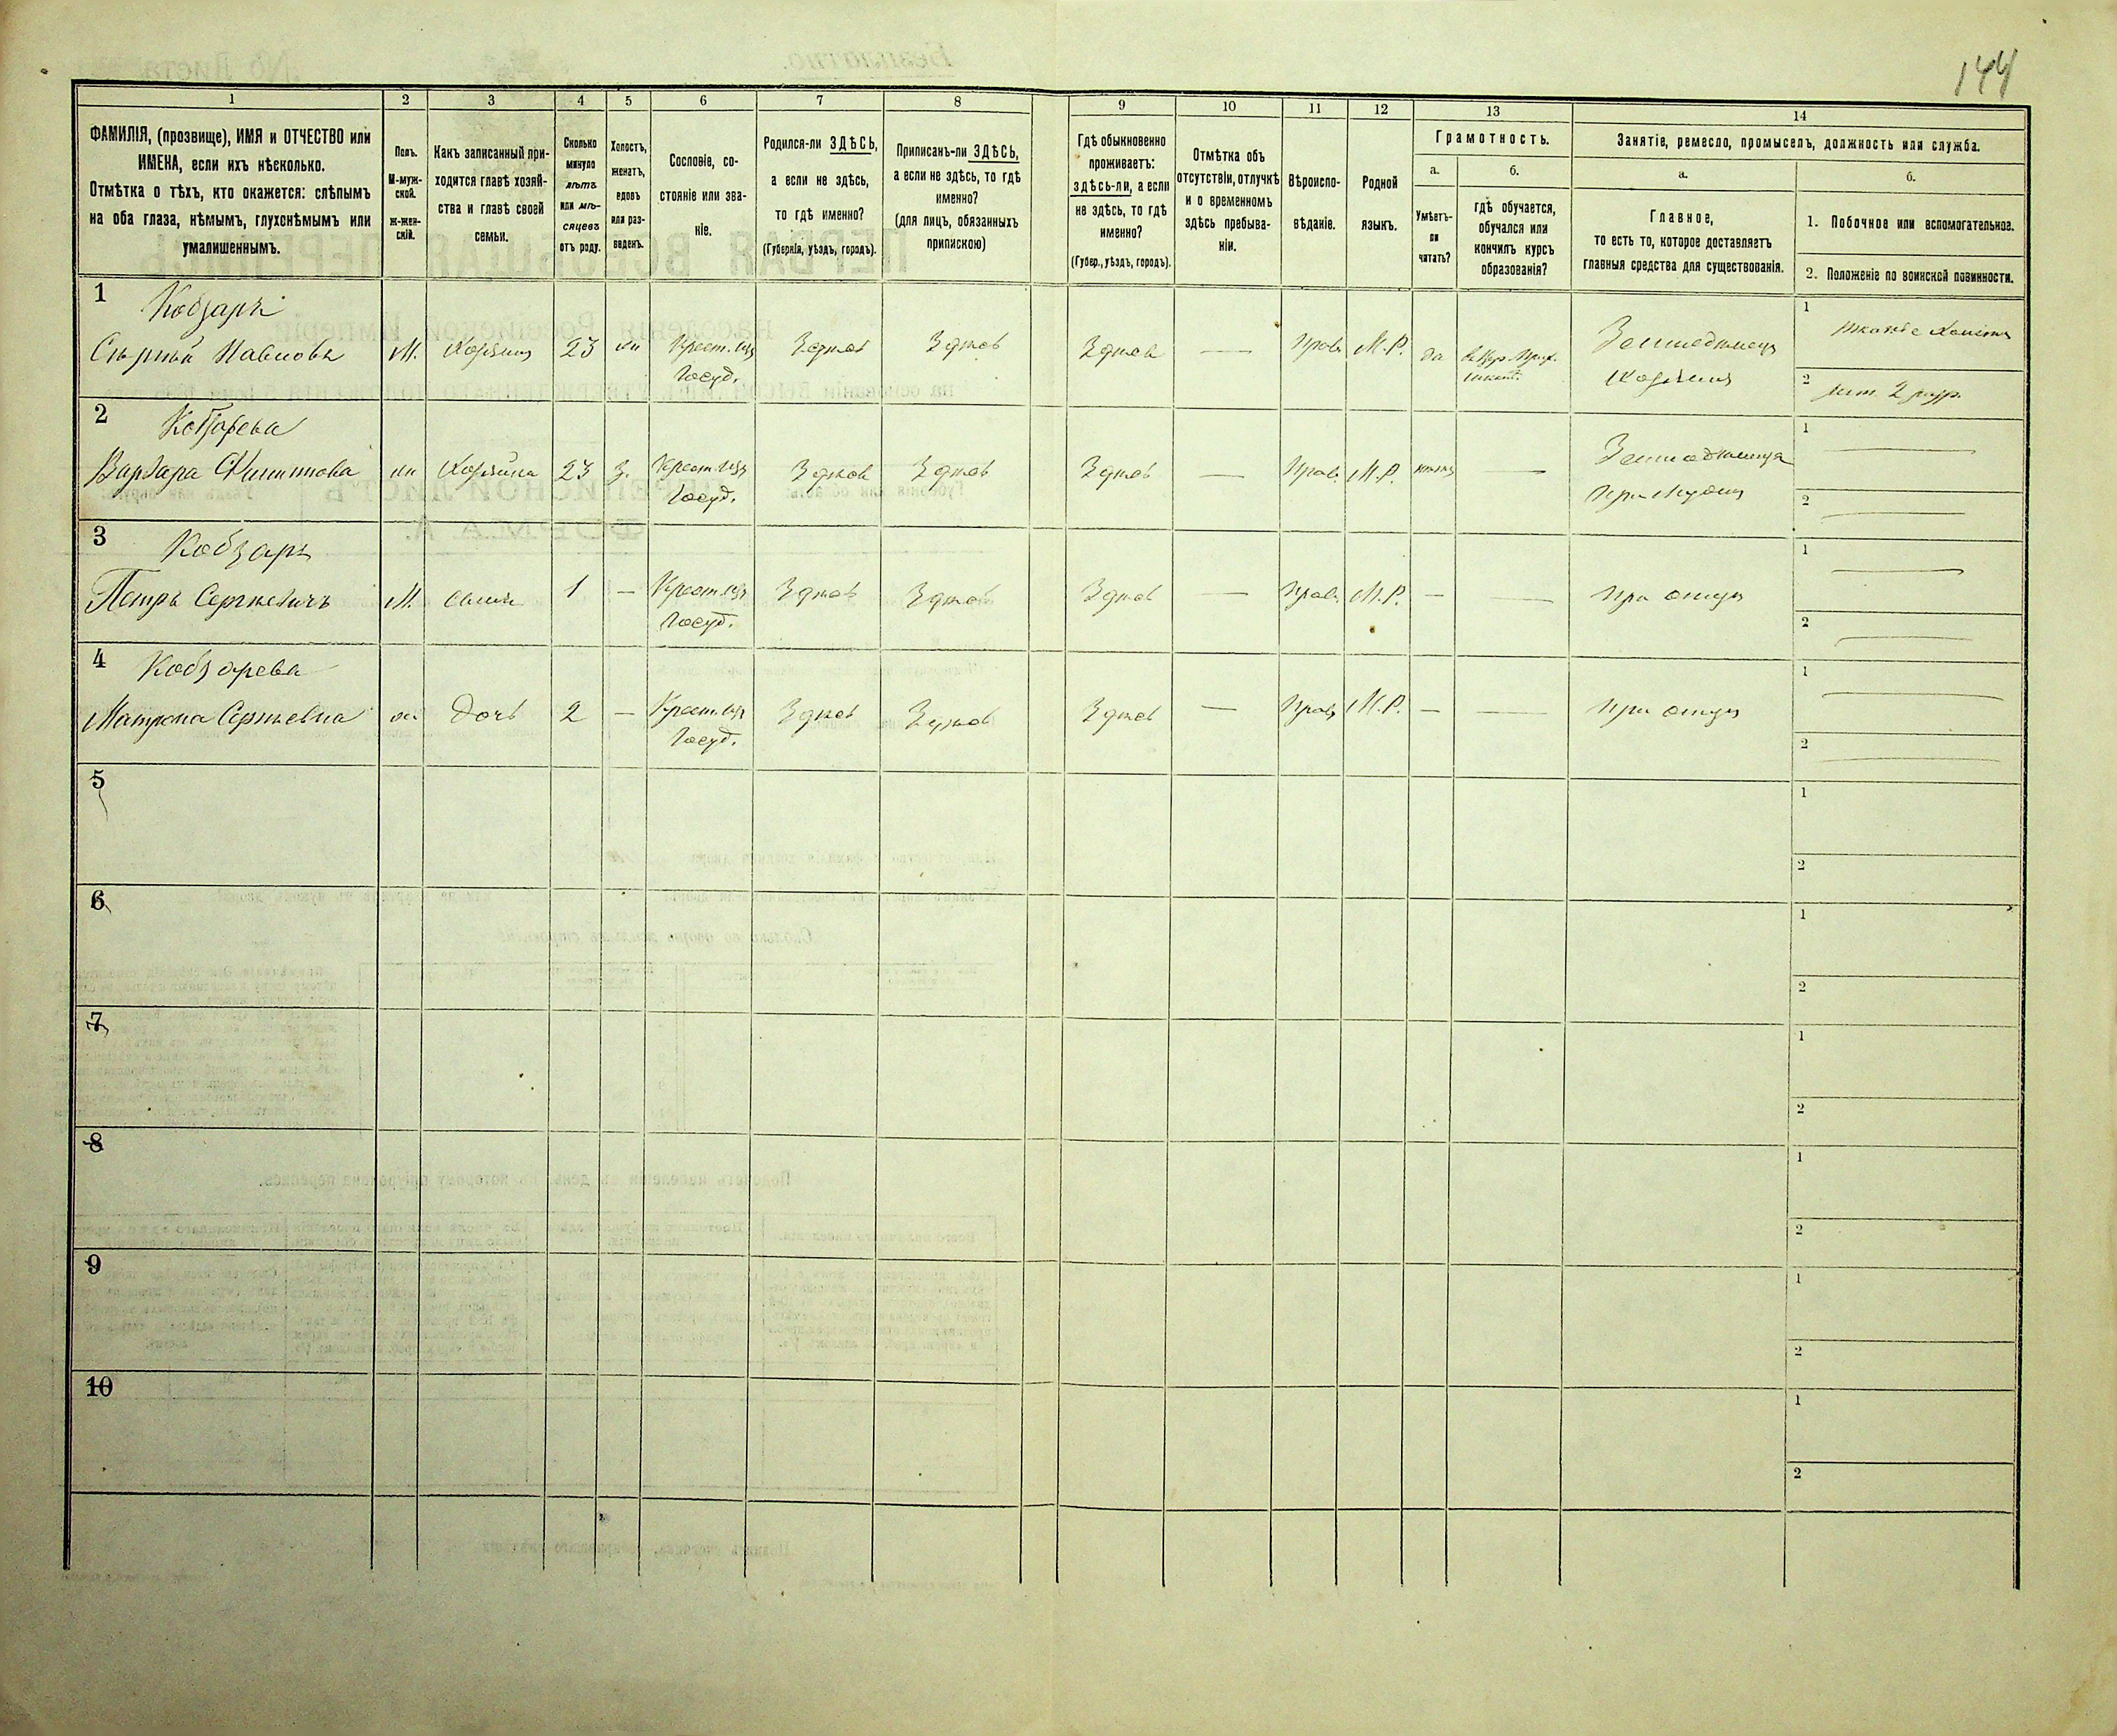 144
1 2 3 4 5 6 7 8 9 10 11 12 13 14
ФАМИЛІЯ, (прозвище), ИМЯ и ОТЧЕСТВО или
ИМЕНА, если ихъ нѣсколько.
Отмѣтка о тѣхъ, кто окажется: слѣпымъ
на оба глаза, нѣмымъ, глухонѣмымъ или
умалишеннымъ.
Полъ.
М-муж-
ской.
Ж-жен-
скій.
Какъ записанный при-
ходится главѣ хозяй-
ства и главѣ своей
семьи.
Сколько
минуло
лѣтъ
или мѣ-
сяцевъ
отъ роду.
Холостъ,
женатъ,
вдовъ
или раз-
веденъ.
Сословіе, со-
стояніе или зва-
ніе.
Родился-ли ЗДѢСЬ,
а если не здѣсь,
то гдѣ именно?
(Губернія, уѣздъ, городъ).
Приписанъ-ли ЗДѢСЬ,
а если не здѣсь, то гдѣ
именно?
(для лицъ, обязанныхъ
припискою)
Гдѣ обыкновенно
проживаетъ:
здѣсь-ли, а если
не здѣсь, то гдѣ
именно?
(Губер., уѣздъ, городъ).
Отмѣтка объ
отсутствіи, отлучкѣ
и о временномъ
здѣсь пребыва-
ніи.
Вѣроиспо-
вѣданіе.
Родной
языкъ.
Грамотность.
а.
Умѣетъ-
ли
читать?
б.
гдѣ обучается,
обучался или
кончилъ курсъ
образованія?
Занятіе, ремесло, промыселъ, должность или служба.
а.
Главное,
то есть то, которое доставляетъ
главныя средства для существованія.
б.
1. Побочное или вспомогательное.
2. Положеніе по воинской повинности.
1 Кобзарь
Сергѣй Павловъ М. Хозяинъ 23 жн Крест. изъ Госуд. Здѣсь Здѣсь Здѣсь — Прав. М.Р. да Землед��лецъ Хозяинъ
1
2 2 разр.
2 Кобзарева
Варвара Филиппова жн Хозяйка 23 з. Крест. изъ Госуд. Здѣсь Здѣсь Здѣсь — Прав. М.Р. — Земледѣлица При Мужѣ
1 —
2 —
3 Кобзарь
Петръ Сергѣевичъ М. сынъ 1 — Крест. изъ Госуд. Здѣсь Здѣсь Здѣсь — Прав. М.Р. — — При отцѣ
1 —
2 —
4 Кобзарева
Матрона Сергѣевна жн дочь 2 — Крест. изъ Госуд. Здѣсь Здѣсь Здѣсь — Прав. М.Р. — — При отцѣ
1 —
2 —
5
1
2
6
1
2
7
1
2
8
1
2
9
1
2
10
1
2